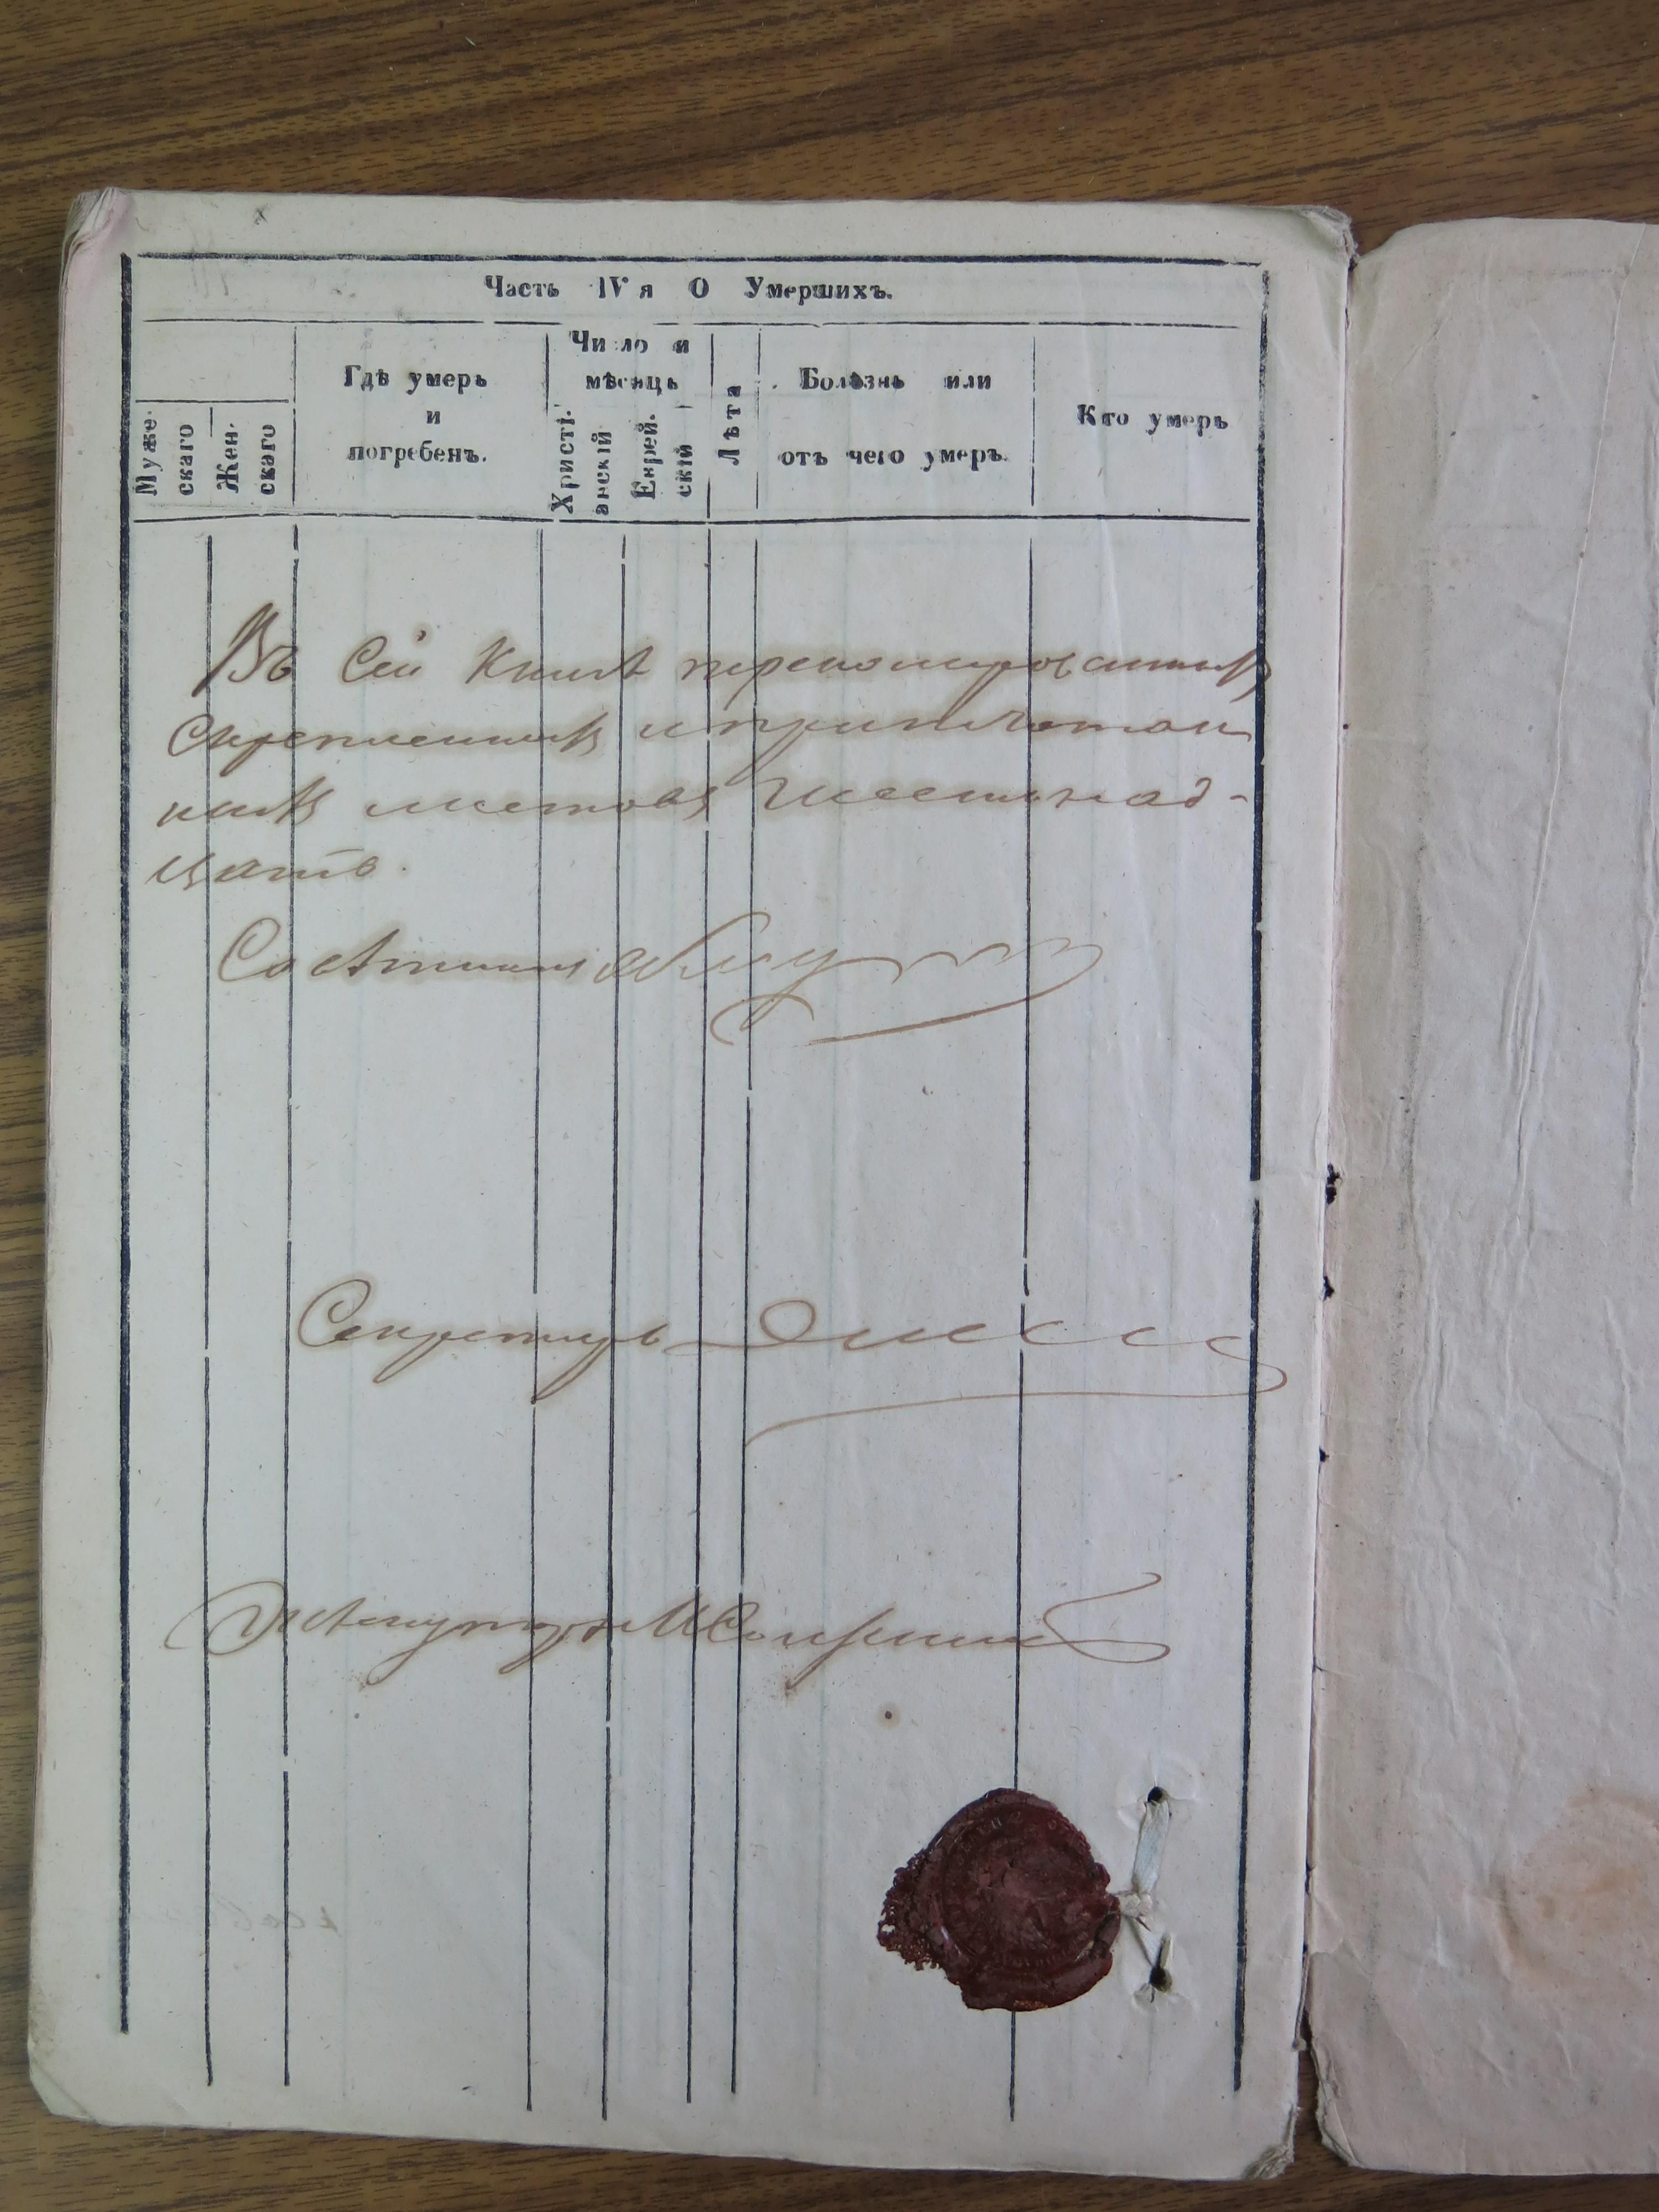 Часть IV я О Умершихъ.
Муже-
скаго
Жен-
скаго
Гдѣ умеръ
и
погребенъ.
Число и
мѣсяцъ
Христі-
анскій
Еврей-
скій
Лѣта
Болѣзнь или
отъ чего умеръ.
Кто умеръ
Въ сей Книгѣ перенумерованныхъ
скрепленныхъ и припечатан
ныхъ листовъ шестьнад-
цать.
Совѣтникъ
Секретарь